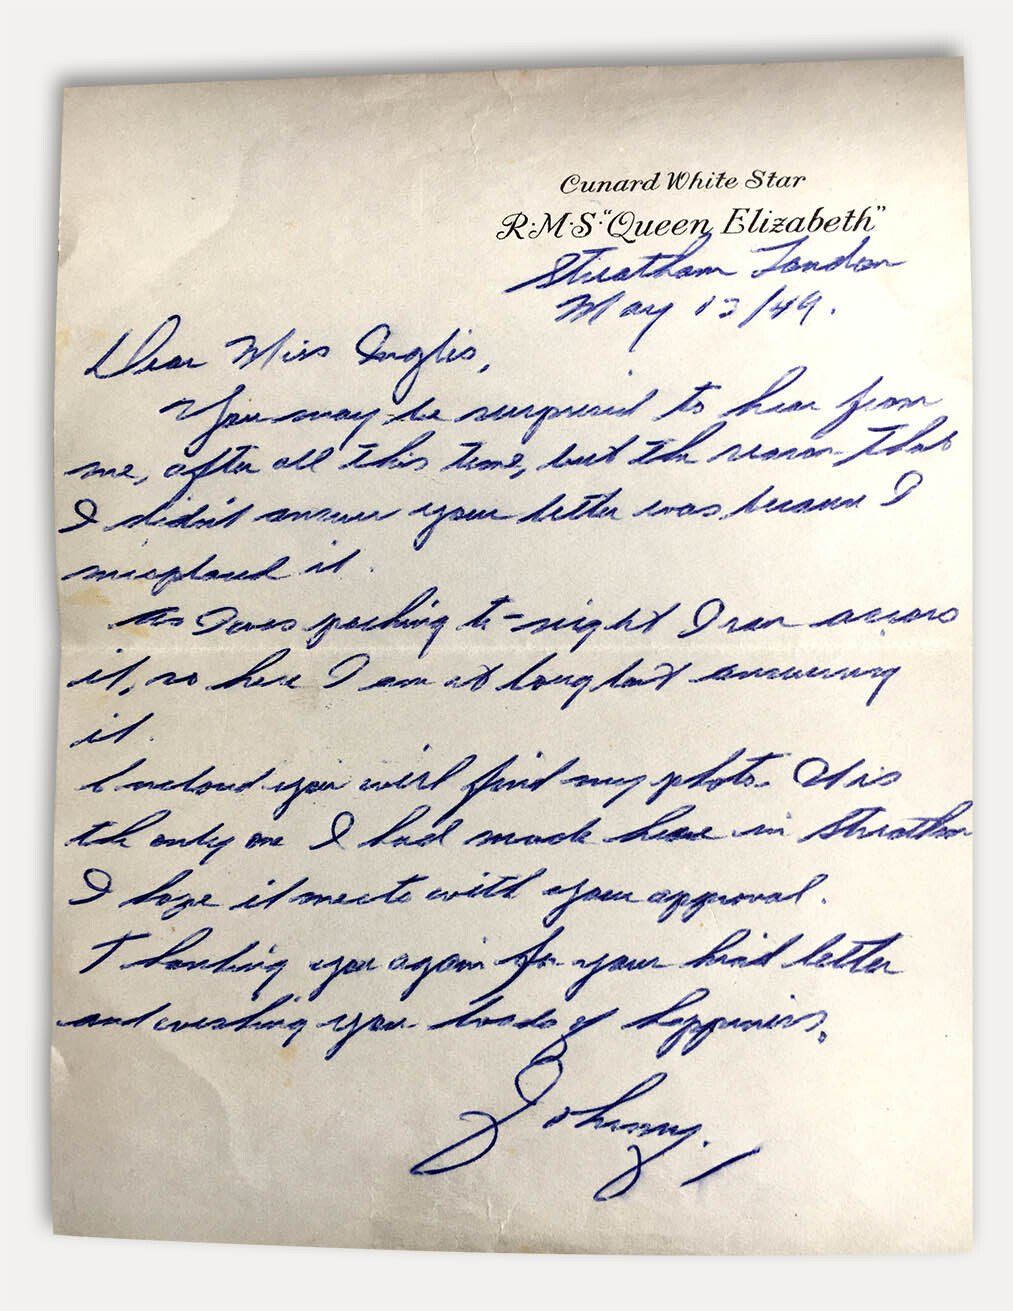 Cunard White Star
R·M·S·"Queen Elizabeth"
Streatham London
May 12/49.
Dear Miss Inglis,
You may be surprised to hear from
me, after all this time, but the reason that
I didn't answer your letter was because I
misplaced it.
As I was packing to-night I ran across
it, so here I am at long last answering
it.
Enclosed you will find my photo. It is
the only one I had made here in Streatham
I hope it meets with your approval.
Thanking you again for your kind letter
and wishing you loads of happiness,
Johnny.